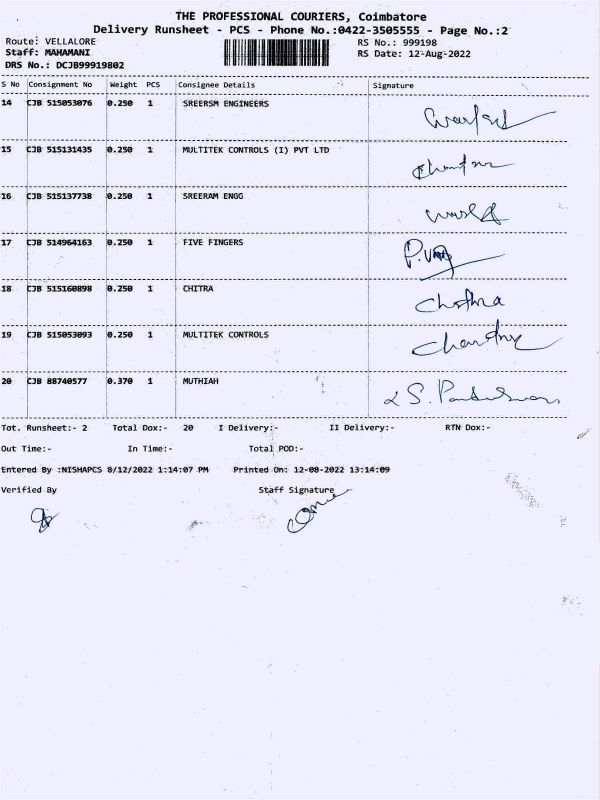 THE PROFESSIONAL COURIERS, Coimbatore
Delivery Runsheet - PCS - Phone No.:0422-3505555 - Page No.:2
Route: VELLALORE RS No.: 999198
Staff: MAHAMANI RS Date: 12-Aug-2022
DRS No.: DCJB99919802
S No Consignment No Weight PCS Consignee Details Signature
14 CJB 515053076 0.250 1 SREERSM ENGINEERS
15 CJB 515131435 0.250 1 MULTITEK CONTROLS (I) PVT LTD
16 CJB 515137738 0.250 1 SREERAM ENGG
17 CJB 514964163 0.250 1 FIVE FINGERS
18 CJB 515160898 0.250 1 CHITRA
19 CJB 515053093 0.250 1 MULTITEK CONTROLS
20 CJB 88740577 0.370 1 MUTHIAH
Tot. Runsheet:- 2 Total Dox:- 20 I Delivery:- II Delivery:- RTN Dox:-
Out Time:- In Time:- Total POD:-
Entered By :NISHAPCS 8/12/2022 1:14:07 PM Printed On: 12-08-2022 13:14:09
Verified By Staff Signature